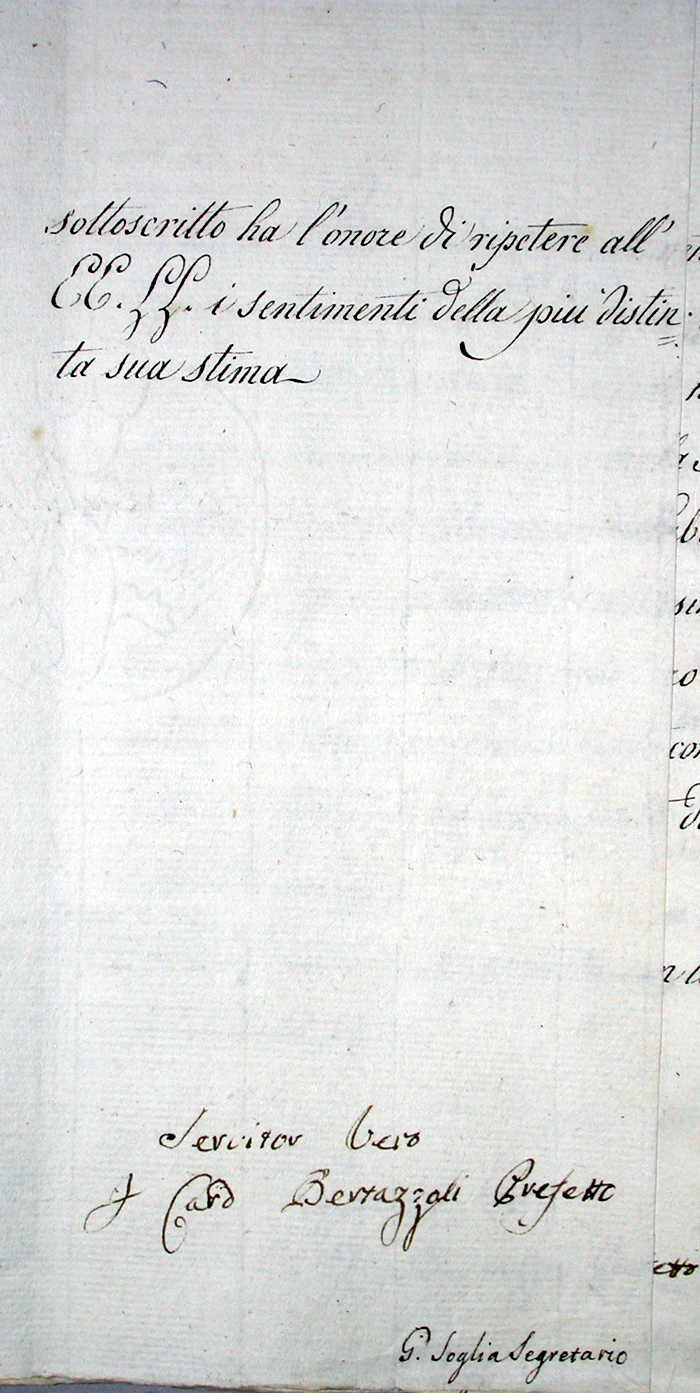 sottoscritto ha l'onore di ripetere all'
EE. LL. i sentimenti della piu distin=
ta sua stima
Servitor Vero
F Card Bertazzoli Prefetto
G. Soglia Segretario